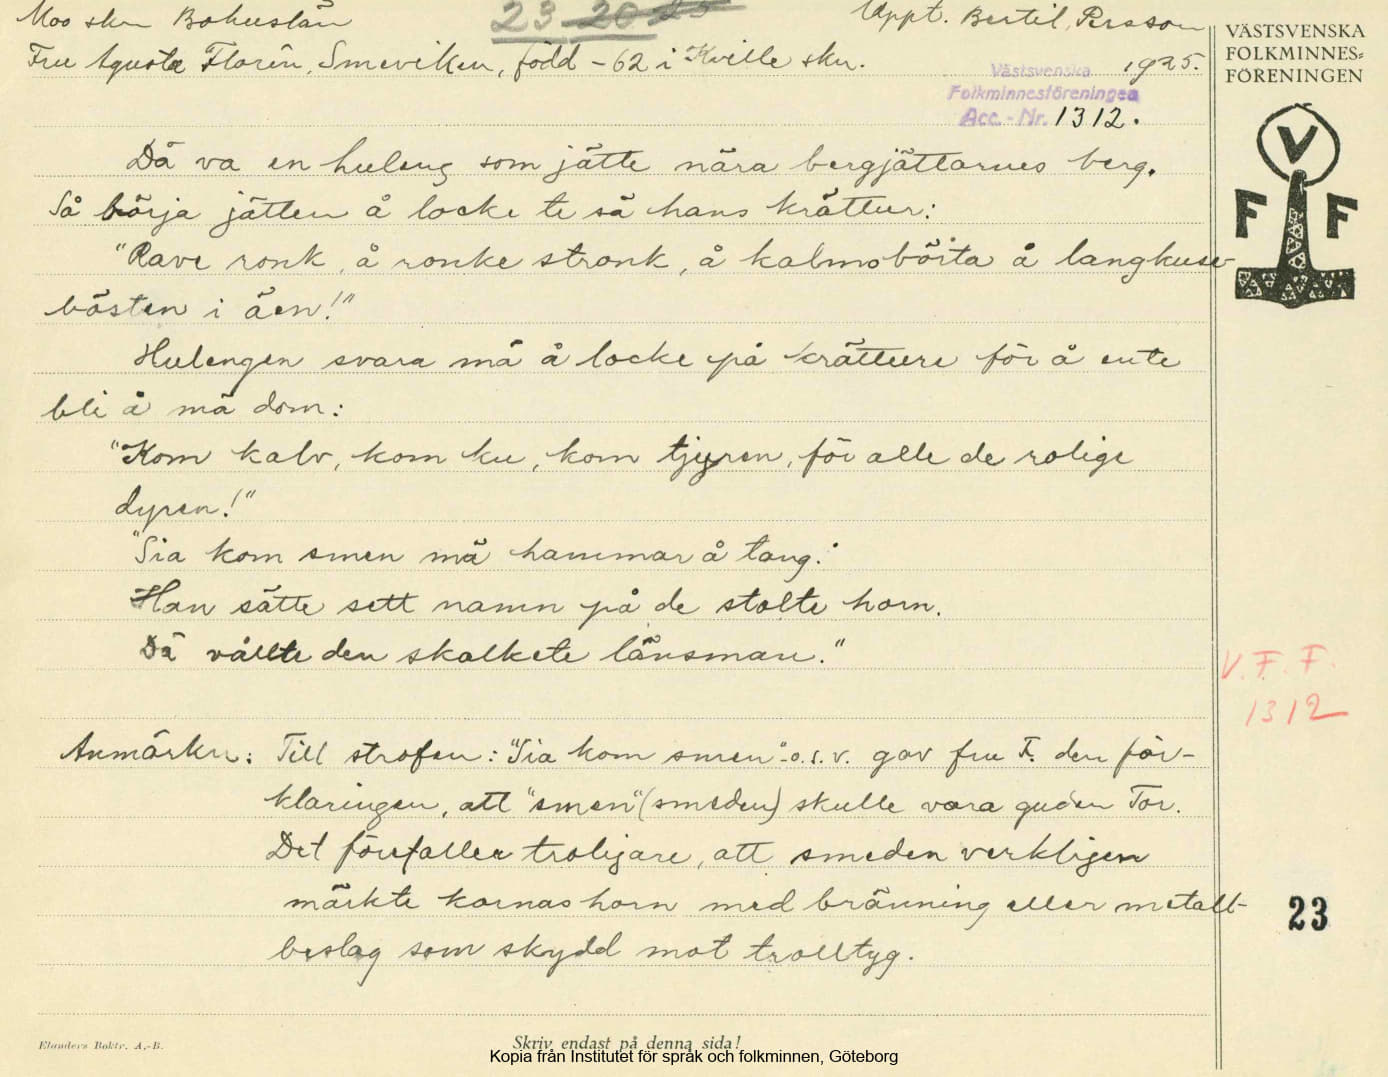 Moo skn Bohuslän
23 20 25
Uppt. Bertil Persson
Fru Agusta Florén, Smeviken, född -62 i Kville skn.
1925.
VÄSTSVENSKA
FOLKMINNES=
FÖRENINGEN
Västsvenska
Folkminnesföreningen
Acc.-Nr. 1312.
V
F F
Dä va en huleng som jätte nära bergjättarnes berg.
Så börja jätten å locke te sä hans krättur:
"Rave ronk, å ronke stronk, å kalmoböita å langkuse-
bösten i äen!"
Hulengen svara mä å locke på krätture för å ente
bli å mä dom:
"Kom kalv, kom ku, kom tjyren, för alle de rolige
dyren!"
"Sia kom smen mä hammar å tang.
Han sätte sett namn på de stolte horn.
Dä vållte den skalkete länsman."
V.F.F.
1312
Anmärkn: Till strofen: "Sia kom smen"-o.s.v. gav fru F. den för-
klaringen, att "smen" (smeden) skulle vara guden Tor.
Det förefaller troligare, att smeden verkligen
märkte kornas horn med bränning eller metall-
beslag som skydd mot trolltyg.
23
Elanders Boktr. A.-B.
Skriv endast på denna sida!
Kopia från Institutet för språk och folkminnen, Göteborg